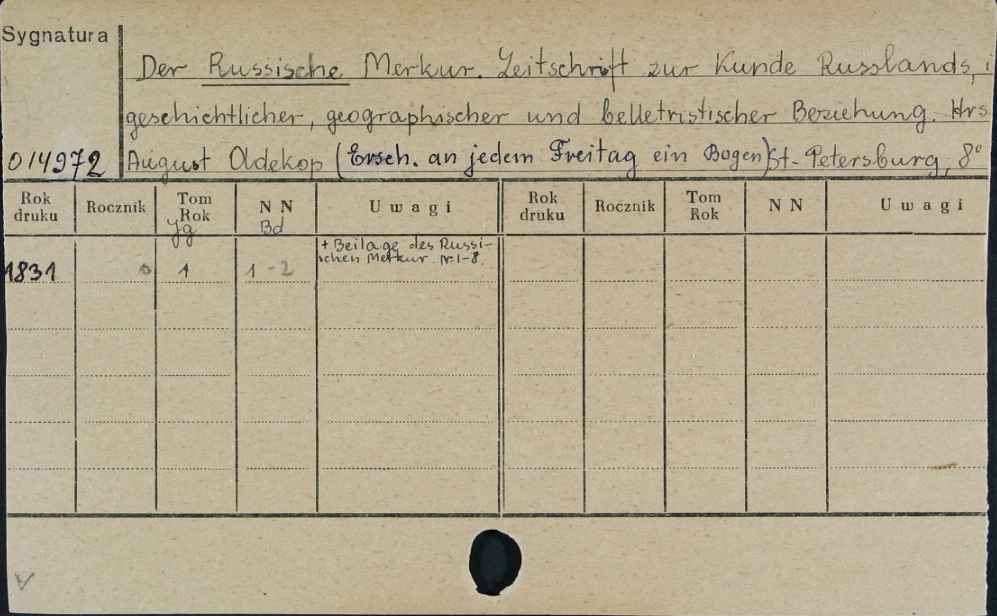 Sygnatura
Der Russische Merkur. Zeitschrift zur Kunde Russlands, i
geschichtlicher, geographischer und belletristischer Beziehung. Hrs
014972 August Oldekop (Ersch. an jedem Freitag ein Bogen) St. Petersburg, 8°
Rok druku Rocznik Tom Rok N N Uwagi Rok druku Rocznik Tom Rok N N Uwagi
Jg Bd
+ Beilage des Russi-
schen Merkur. Nr. 1-8.
1831 0 1 1-2